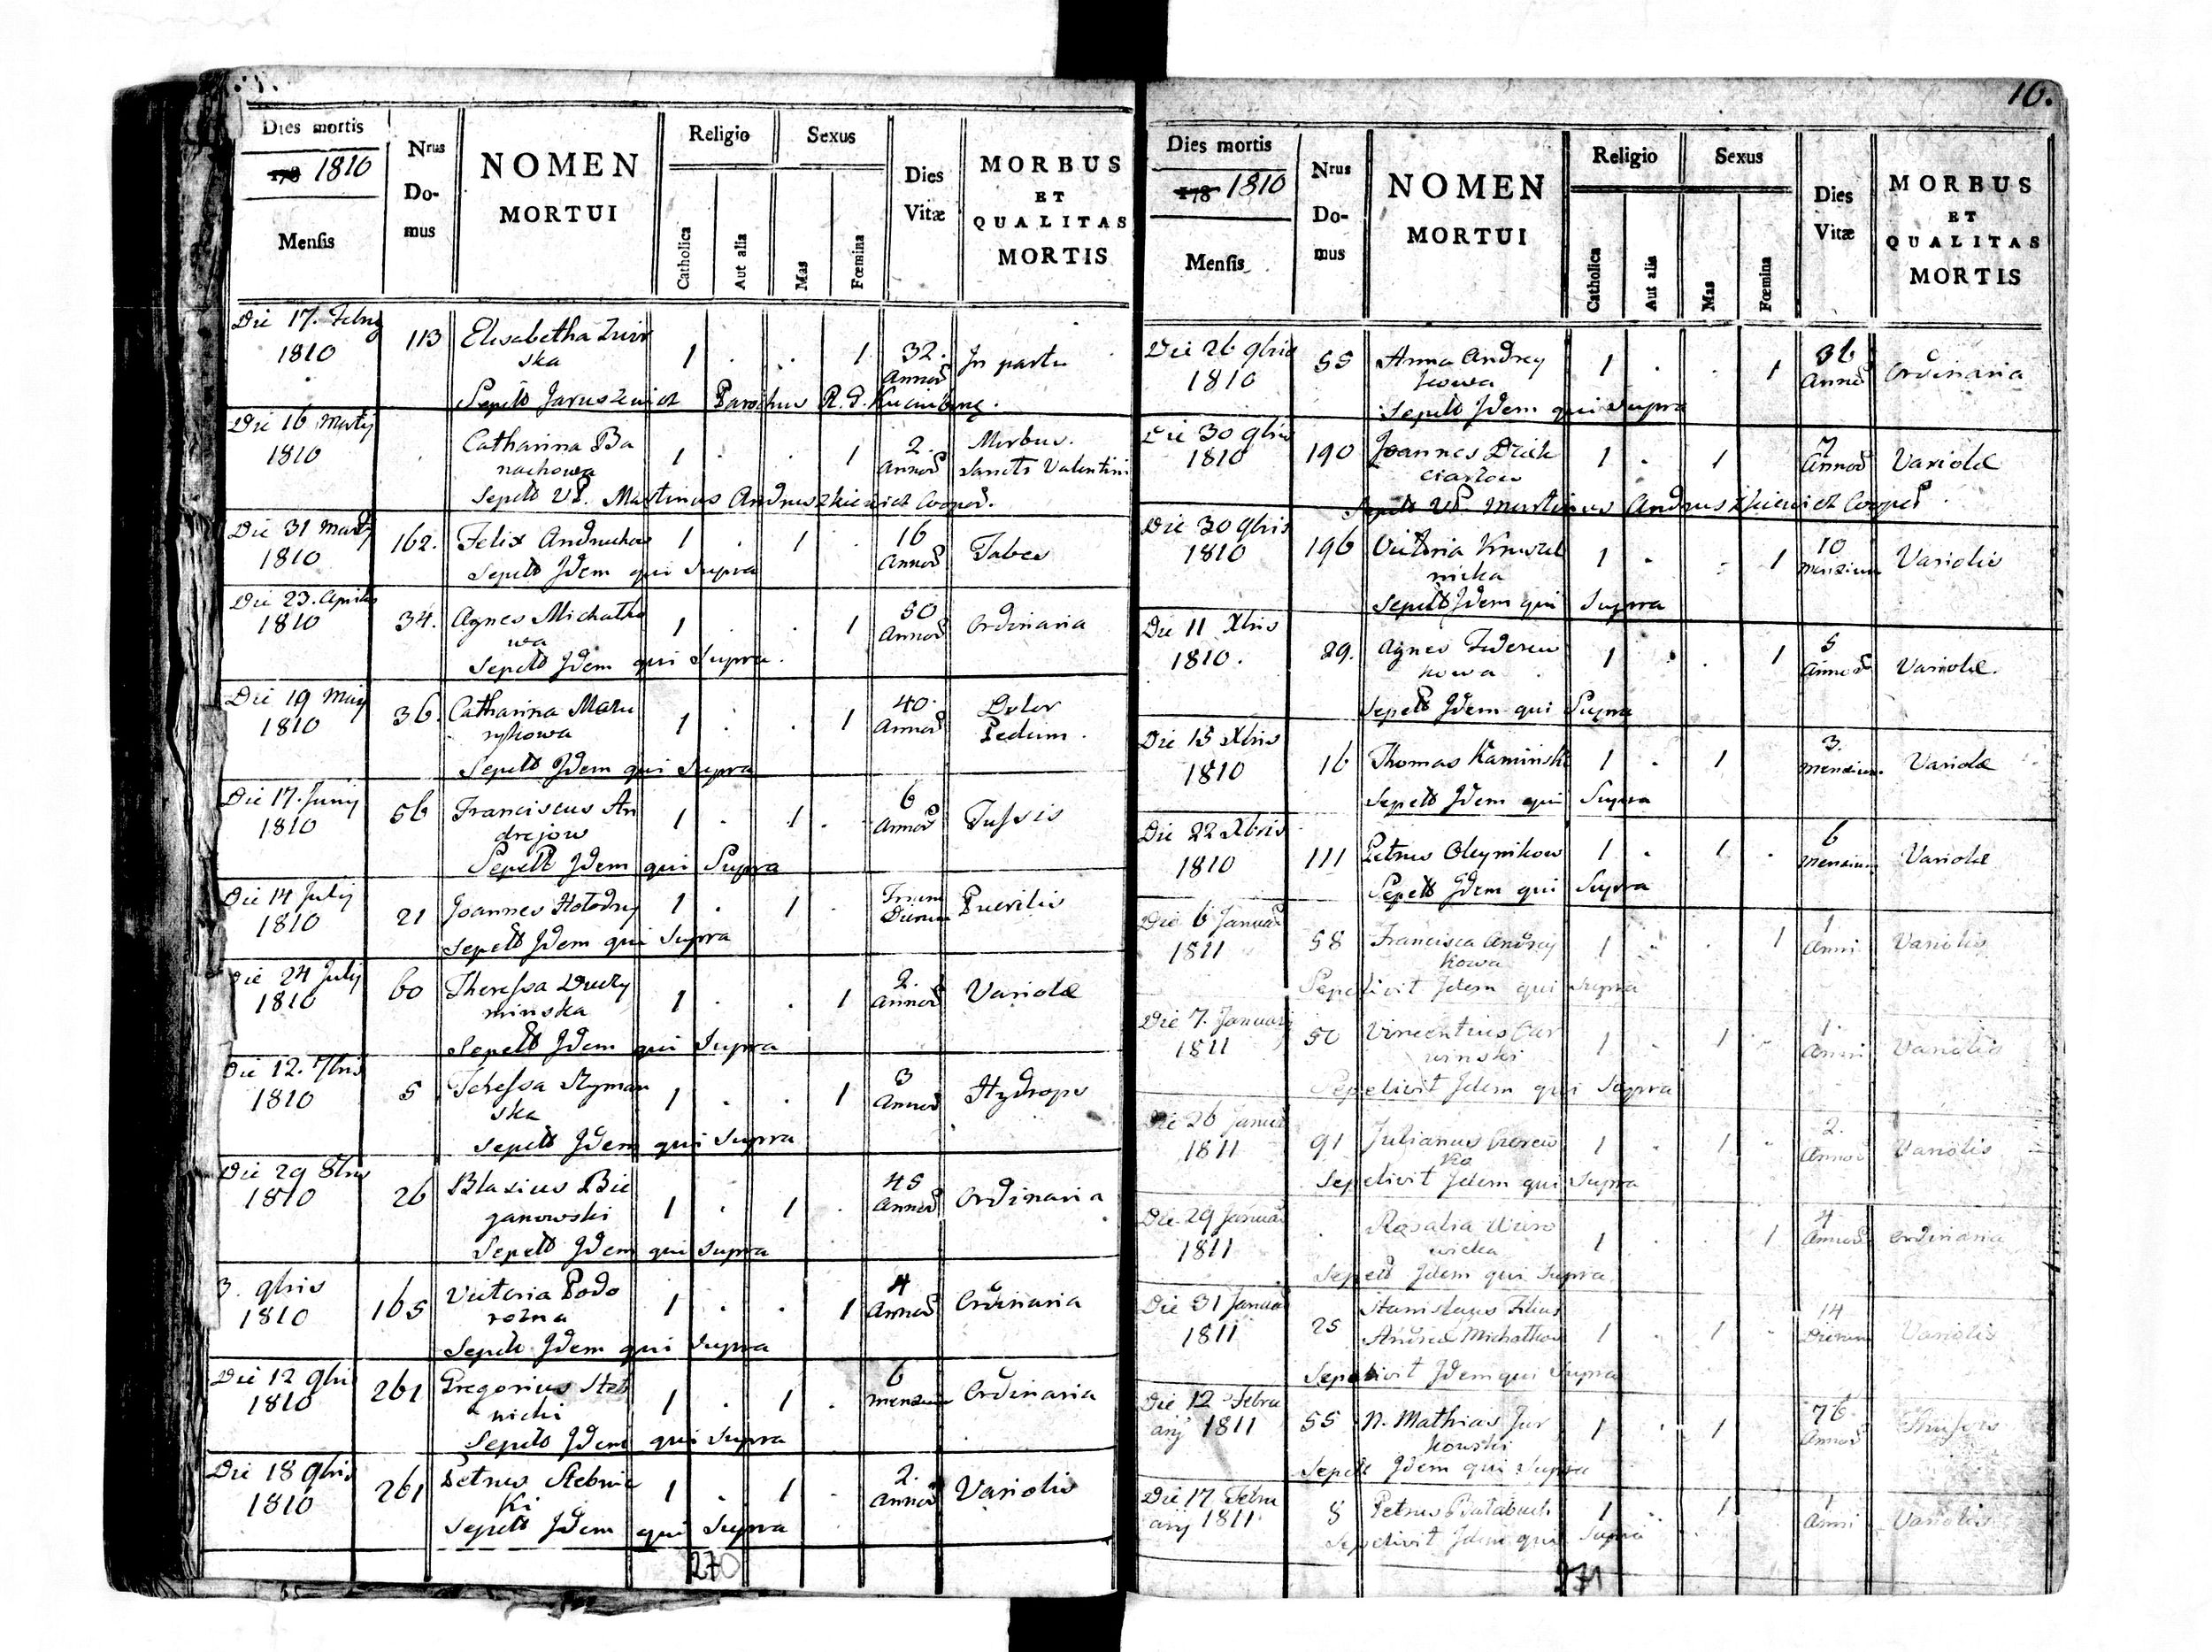 Dies mortis
178 1810
Mensis
Nrus
Do-
mus
NOMEN
MORTUI
Religio
Catholica
Aut alia
Sexus
Mas
Fœmina
Dies
Vitæ
MORBUS
ET
QUALITAS
MORTIS
Die 17. Febry
1810
113
Elisabetha
ska
1 . . 1
32.
Annoȓ
In partu
Sepelt Jaruszewicz Parochus R. G.
Die 16 Martij
1810
Catharina Ba
nachowa
1 . . 1
2.
Annoȓ
Morbus
Sancti Valentini
Sepelt VP. Martinus Andruszkiewicz Cooper.
Die 31 Martij
1810
162.
Felix Andruchow
1 . 1 .
16
Annoȓ
Tabes
Sepelt Idem qui Supra
Die 23. Aprilis
1810
34.
Agnes Michalko
wa
1 . . 1
50
Annoȓ
Ordinaria
Sepelt Idem qui Supra.
Die 19 Maij
1810
36.
Catharina Mazu
rykowa
1 . . 1
40.
Annoȓ
Dolor
Pedum.
Sepelt Idem qui Supra
Die 17. Junij
1810
56
Franciscus An
drejow
1 . 1 .
6
Annoȓ
Tussis
Sepelt Idem qui Supra
Die 14 Julij
1810
21
Joannes Hołodny
1 . 1 .
Trium
Dierum
Puerilis
Sepelt Idem qui Supra
Die 24 Julij
1810
60
Theressa Duczy
minska
1 . . 1
2.
Annoȓ
Variolæ
Sepelt Idem qui Supra
Die 12. 7bris
1810
5
Theressa Szyman
ska
1 . . 1
3
Annoȓ
Hydrops
Sepelt Idem qui Supra
Die 29 8bris
1810
26
Blasius Bie
ganowski
1 . 1 .
45
Annoȓ
Ordinaria
Sepelt Idem qui Supra
3. 9bris
1810
165
Victoria Podo
rożna
1 . . 1
4
Annoȓ
Ordinaria
Sepelt Idem qui Supra
Die 12 9bris
1810
261
Gregorius Steb
nicki
1 . 1 .
6
Mensium
Ordinaria
Sepelt Idem qui Supra
Die 18 9bris
1810
261
Petrus Stebnic
Ki
1 . 1 .
2.
Annoȓ
Variolis
Sepelt Idem qui Supra
270
10.
Dies mortis
178 1810
Mensis
Nrus
Do-
mus
NOMEN
MORTUI
Religio
Catholica
Aut alia
Sexus
Mas
Fœmina
Dies
Vitæ
MORBUS
ET
QUALITAS
MORTIS
Die 26 9bris
1810
55
Anna Andrey
kowa
1 . . 1
36
Annoȓ
Ordinaria
Sepelt Idem qui Supra
Die 30 9bris
1810
190
Joannes
1 . 1
7
Annoȓ
Variolæ
Sepelt VP. Martinus Andruszkiewicz Cooper
Die 30 9bris
1810
196
Victoria
nicka
1 . . 1
10
Mensium
Variolis
Sepelt Idem qui Supra
Die 11 Xbris
1810.
29.
Agnes Federcu
kowa
1 . . 1
5
Annoȓ
Variolæ.
Sepelt Idem qui Supra
Die 15 Xbris
1810
16
Thomas Kaminski
1 . 1
3.
Mensium.
Variolæ
Sepelt Idem qui Supra
Die 22 Xbris
1810
111
Petrus Oleynikow
1 . 1 .
6
Mensium
Variolæ
Sepelt Idem qui Supra
Die 6 Januar
1811
58
Francisca Andrey
kowa
1 . . 1
1
Anni
Variolis
Sepelivit Idem qui Supra
Die 7. Januarij
1811
50
Vincentius
winski
1 . 1 .
1.
Anni
Variolis
Sepelivit Idem qui Supra
Die 26 Januar
1811
91
Julianus
ko
1 . 1 .
2.
Annoȓ
Variolis
Sepelivit Idem qui Supra
Die 29 Januar
1811
Rosalia
wicka
1 . . 1
4
Annoȓ
Ordinaria
Sepelt Idem qui Supra
Die 31 Januar
1811
25
Stanislaus Filius
Andreæ Michalkow
1 . 1 .
14
Dierum
Variolis
Sepelivit Idem qui Supra
Die 12 Febru
arij 1811
55
N. Mathias Jur
kowski
1 . 1
76
Annoȓ
Sepelt Idem qui Supra
Die 17 Febru
arij 1811
8
Petrus Bałabuch
1 . 1
1
Anni
Variolis
Sepelivit Idem qui Supra
271